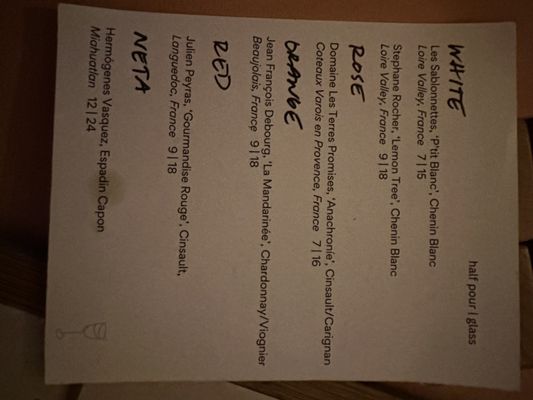 half pour | glass
WHITE
Les Sablonnettes, 'P'tit Blanc', Chenin Blanc
Loire Valley, France 7 | 15
Stephane Rocher, 'Lemon Tree', Chenin Blanc
Loire Valley, France 9 | 18
ROSE
Domaine Les Terres Promises, 'Anachronie', Cinsault/Carignan
Coteaux Varois en Provence, France 7 | 16
ORANGE
Jean François Debourg, 'La Mandarinée', Chardonnay/Viognier
Beaujolais, France 9 | 18
RED
Julien Peyras, 'Gourmandise Rouge', Cinsault,
Languedoc, France 9 | 18
NETA
Hermógenes Vasquez, Espadin Capon
Miahuatlan 12 | 24